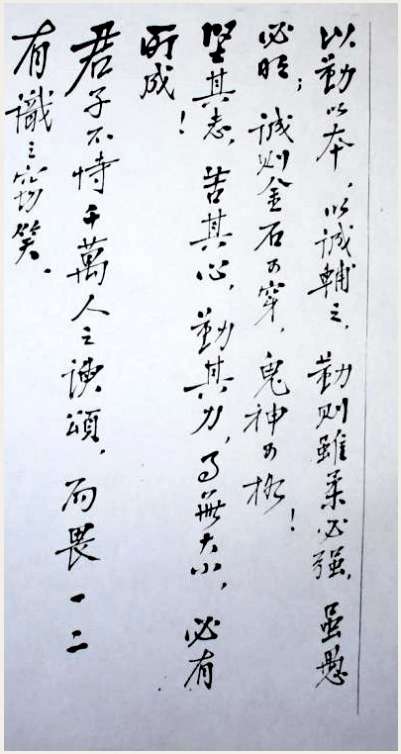 以勤以本，以诚輔之，勤则雖柔必强，虽愚
必明；诚则金石可穿，鬼神可格！
坚其志，苦其心，勤其力，事無大小，必有
所成！
君子不恃千萬人之諛頌，而畏一二
有識之窃笑。